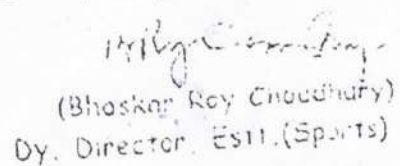 (Bhaskar Roy Chaudhury)
Dy. Director Estt.(Sports)